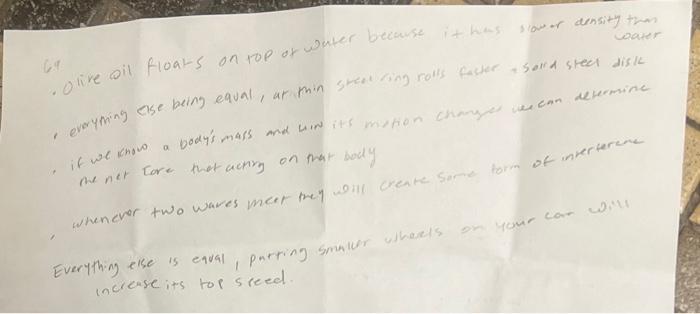 69
. Olive oil floats on top of water because it has slower density than water
. everything else being equal, a thin steel ring rolls faster a solid steel disk
. if we know a body's mass and its motion changes we can determine
the net force that acting on that body
. whenever two waves meet they will create some form of interference
Everything else is equal, putting smaller wheels on your car will
increase its top speed.